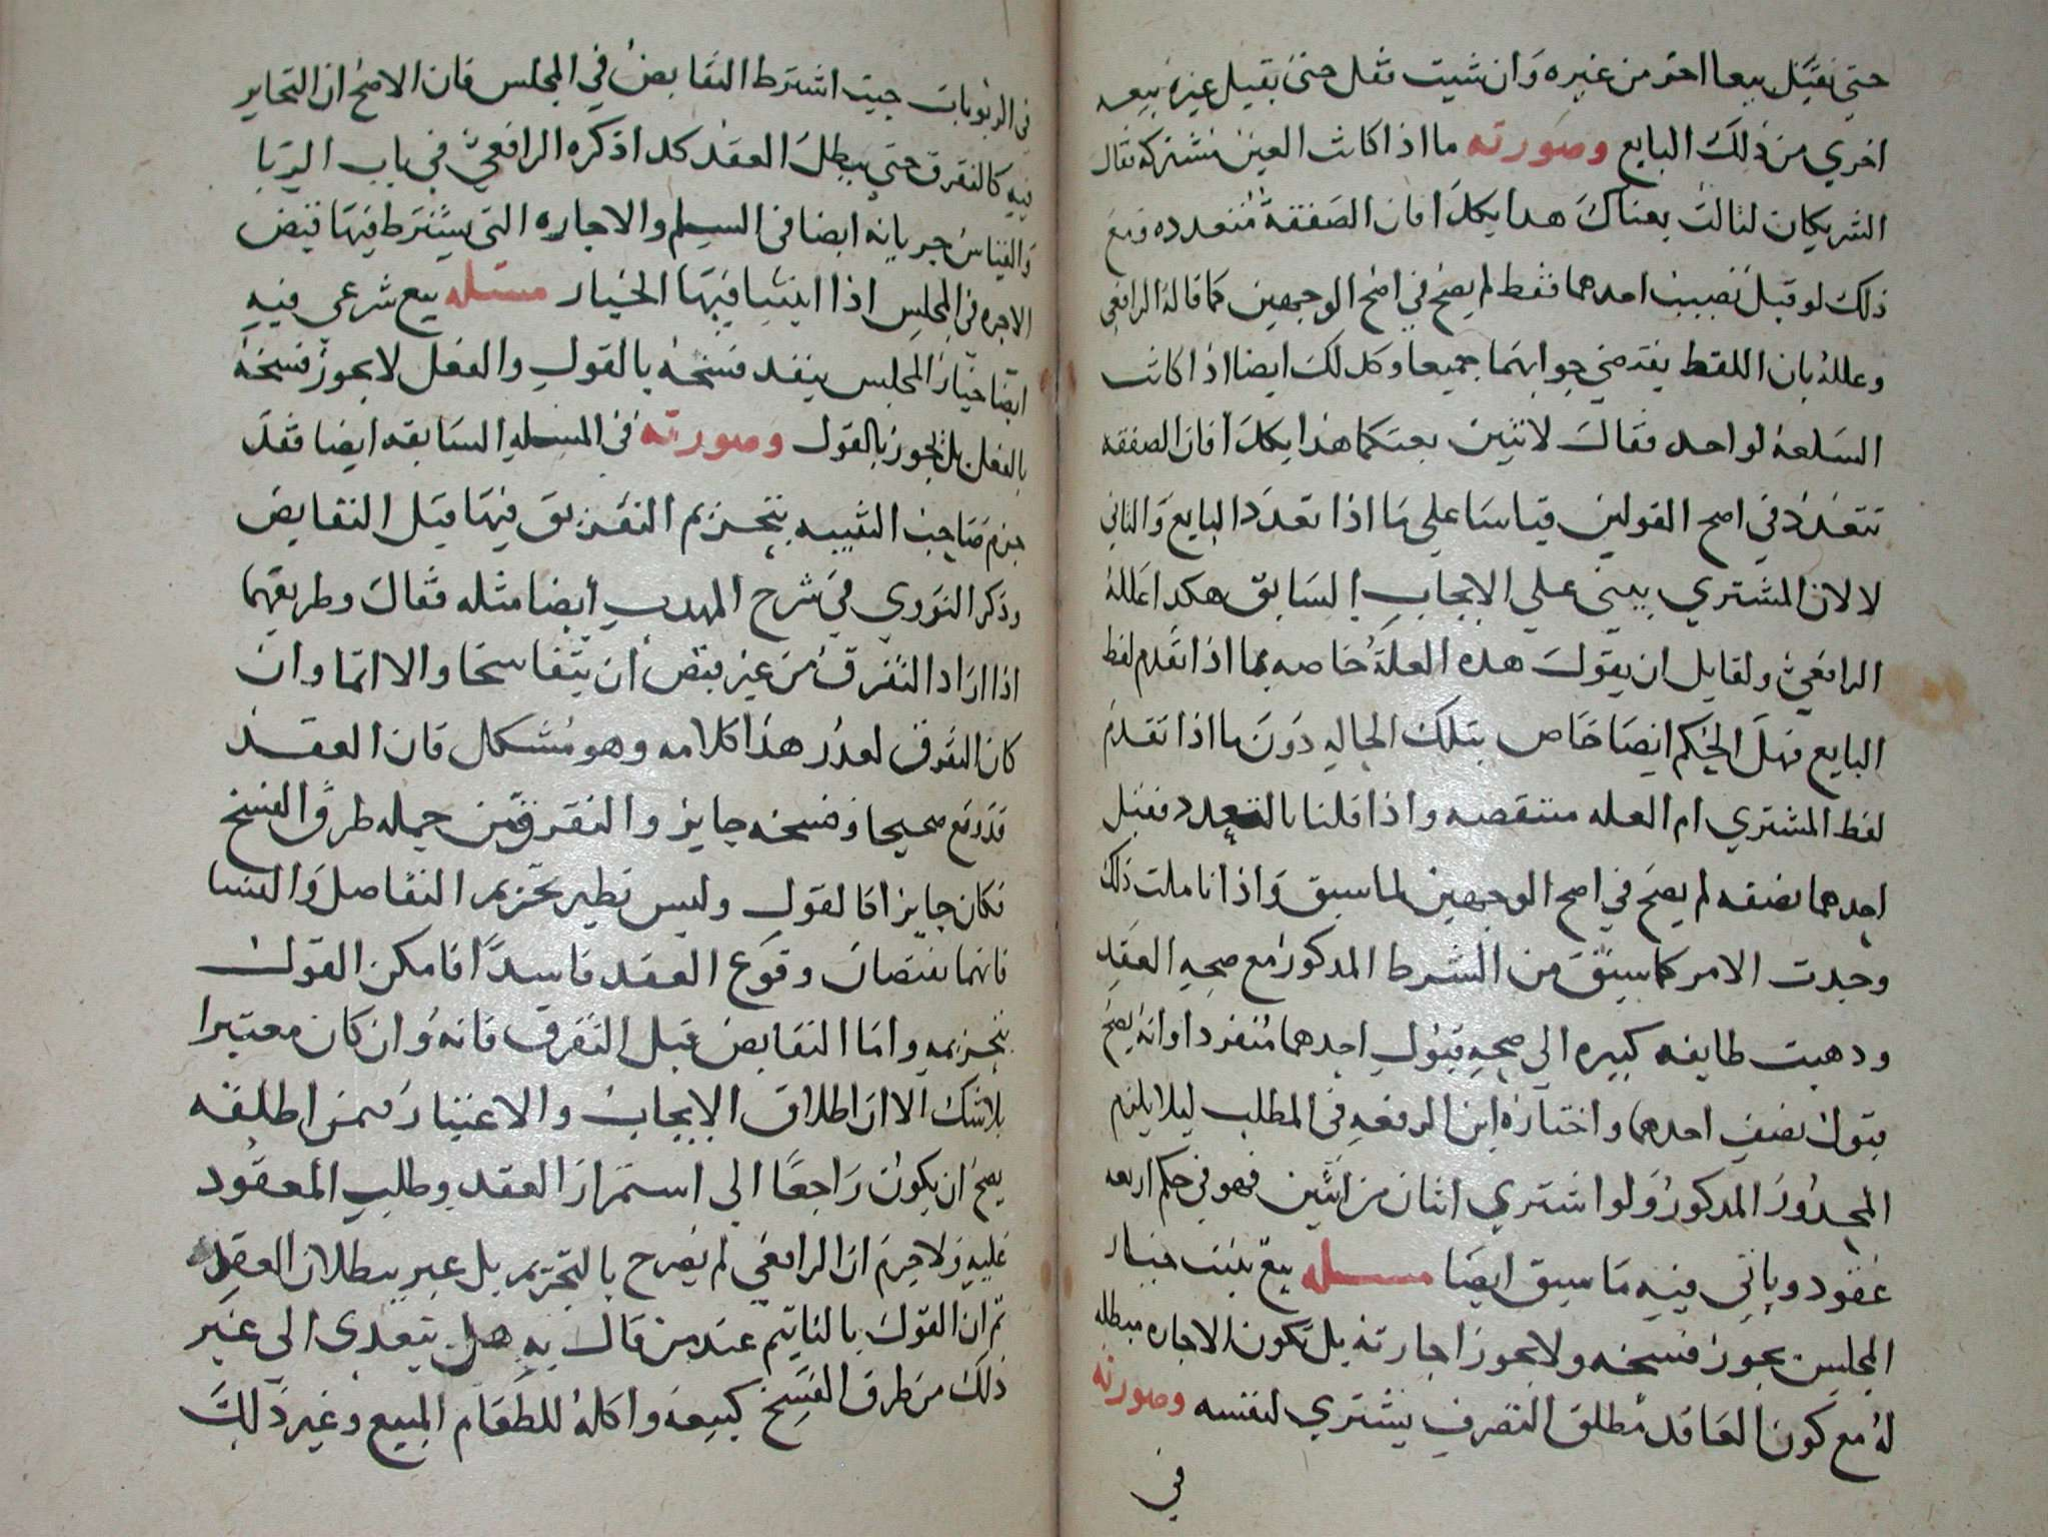 حتى يقبل بيعا اخر من غيره وان شيت فقل حتى يقبل غيره بيعه
اخري من ذلك البايع وصورته ما اذا كانت العين مشتركه فقال
الشريكان لثالث بعناك هدا بكدا فان الصفقة متعدده ومع
ذلك لو قبل نصيب احدهما فقط لم يصح في اصح الوجهين كما قاله الرافعي
وعلله بان اللفظ يقتضي جوابهما جميعا وكدلك ايضا اذا كانت
السلعة لواحد فقال لاثنين بعتكما هذا بكدا فان الصفقه
تتعدد في اصح القولين قياسا على ما اذا تعدد البايع والثاني
لا لان المشتري يبني على الايجاب السابق هكدا علله
الرافعي ولقايل ان يقول هده العلة خاصه بما اذا تقدم لفظ
البايع فهل الحكم ايضا خاص بتلك الحاله دون ما اذا تقدم
لفظ المشتري ام العله منتقصه واذا قلنا بالتعدد فقبل
احدهما نصفه لم يصح في اصح الوجهين لما سبق واذا تاملت ذلك
وجدت الامر كما سبق من الشرط المدكور مع صحه العقد
ودهبت طايفه كبيره الى صحه قبول احدهما منفردا وانه يصح
قبول نصف احدهما واختاره ابن الرفعه في المطلب ليلا يلزم
المحدور المدكور ولو اشتري اثنان من اثنين فهو في حكم اربعه
عقود وياتى فيه ما سبق ايضا مسله بيع يثبت خيار
المجلس يجوز فسخه ولا يجوز اجارته بل تكون الاجاره مبطله
له مع كون العاقد مطلق التصرف يشتري لنفسه وصورته
في
فى الربويات حيث اشترط التقابض في المجلس فان الاصح ان التخاير
فيه كالتفرق حتى يبطل العقد كدا ذكره الرافعي في باب الربا
والقياس جريانه ايضا فى السلم والاجاره التى يشترط فيها قبض
الاجره في المجلس اذا اثبتنا فيها الخيار مسئله بيع شرعي فيه
ايضا خيار المجلس ينفد فسخه بالقول والفعل لا يجوز فسخه
بالفعل بل يجوز بالقول وصورته فى المسله السابقه ايضا فقد
جزم صاحب التنبيه بتحريم التفريق فيها قبل التقابض
وذكر النووي في شرح المهدب أيضا مثله فقال وطريقهما
اذا ارادا التفرق من غير قبض ان يتفاسخا والا اثما وان
كان التفرق لعدر هذا كلامه وهو مشكل فان العقد
قد وقع صحيحا وفسخه جايز والتفرق من جمله طرق الفسخ
فكان جايزا كالقول وليس نظير تحريم التفاصل والنسا
فانهما يقتضيان وقوع العقد فاسدا فامكن القول
بتحريمه واما التقابض قبل التفرق فانه وان كان معتبرا
بلا شك الا ان اطلاق الايجاب والاعتبار ممن اطلقه
يصح ان يكون راجعا الى استمرار العقد وطلب المعقود
عليه ولا جرم ان الرافعي لم يصرح بالتحريم بل عبر ببطلان العقد
ثم ان القول بالتاثيم عند من قال به هل يتعدى الى غير
ذلك من طرق الفسخ كبيعه واكله للطعام المبيع وغير ذلك